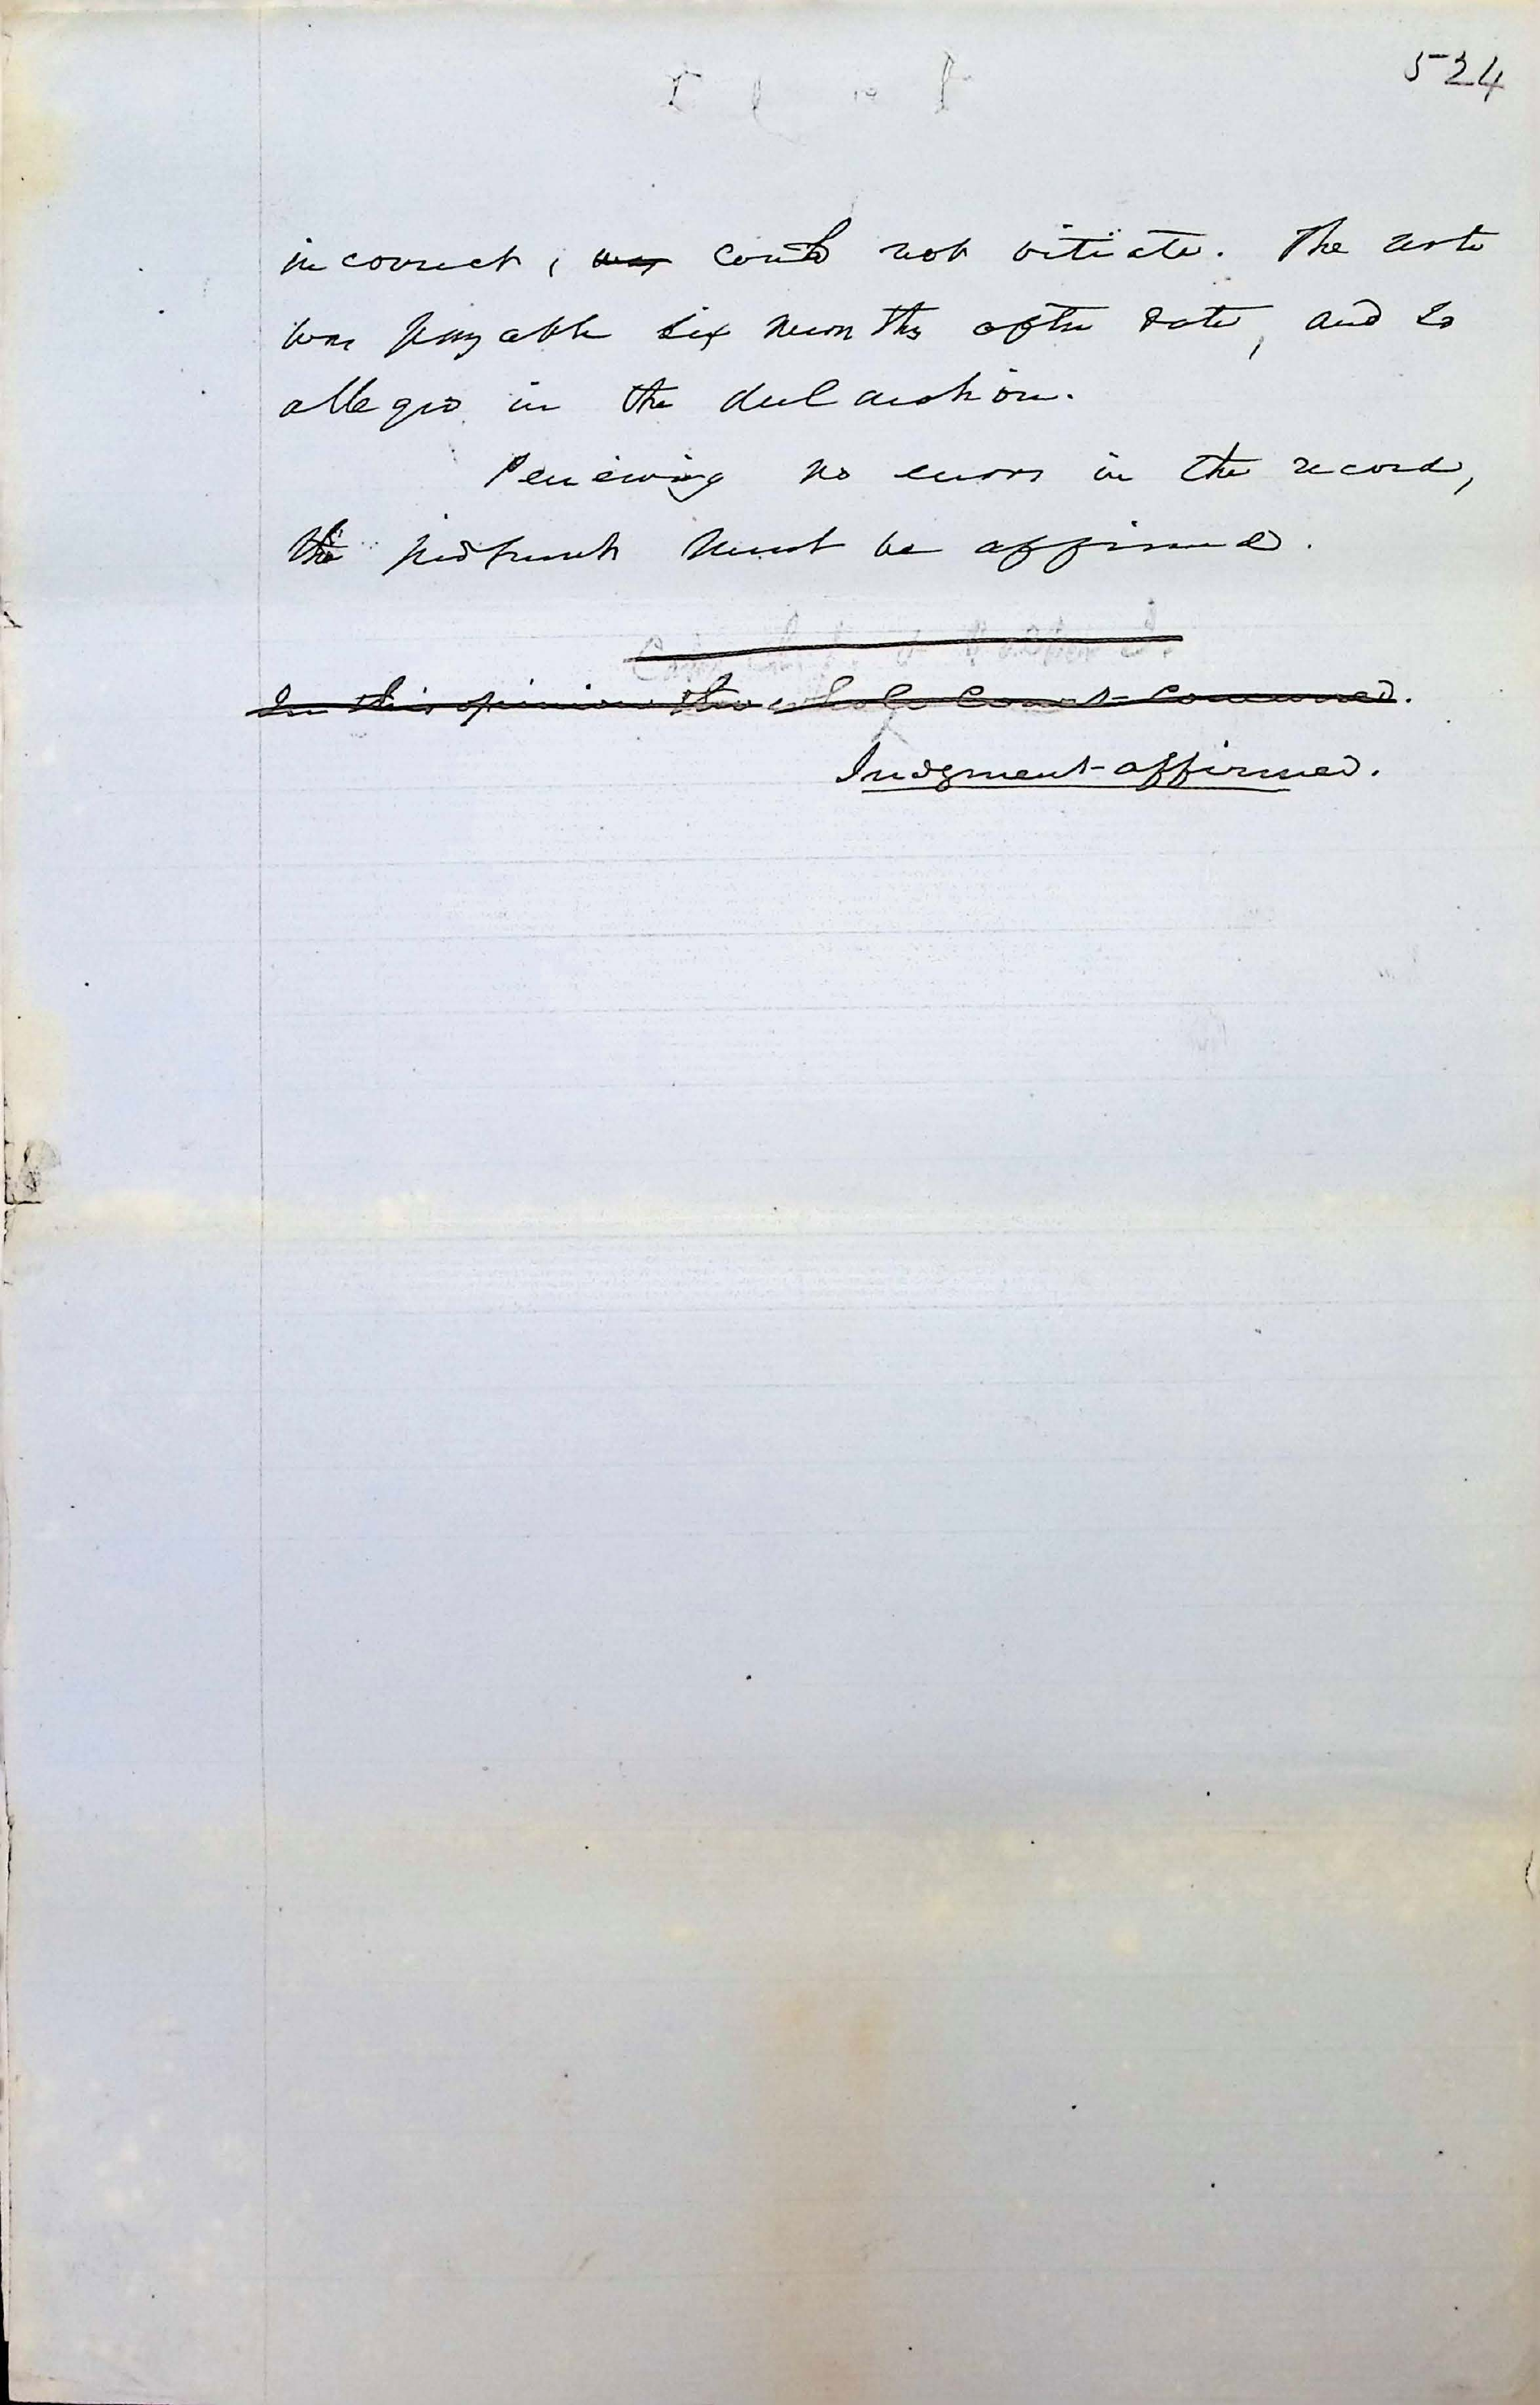 524
incorrect, ~~was~~ could not vitiate. The note
was payable six months after date, and so
alleged in the declaration.
Perceiving no errors in the record,
the judgment must be affirmed.
~~In this opinion the whole Court concurred.~~
Judgment affirmed.